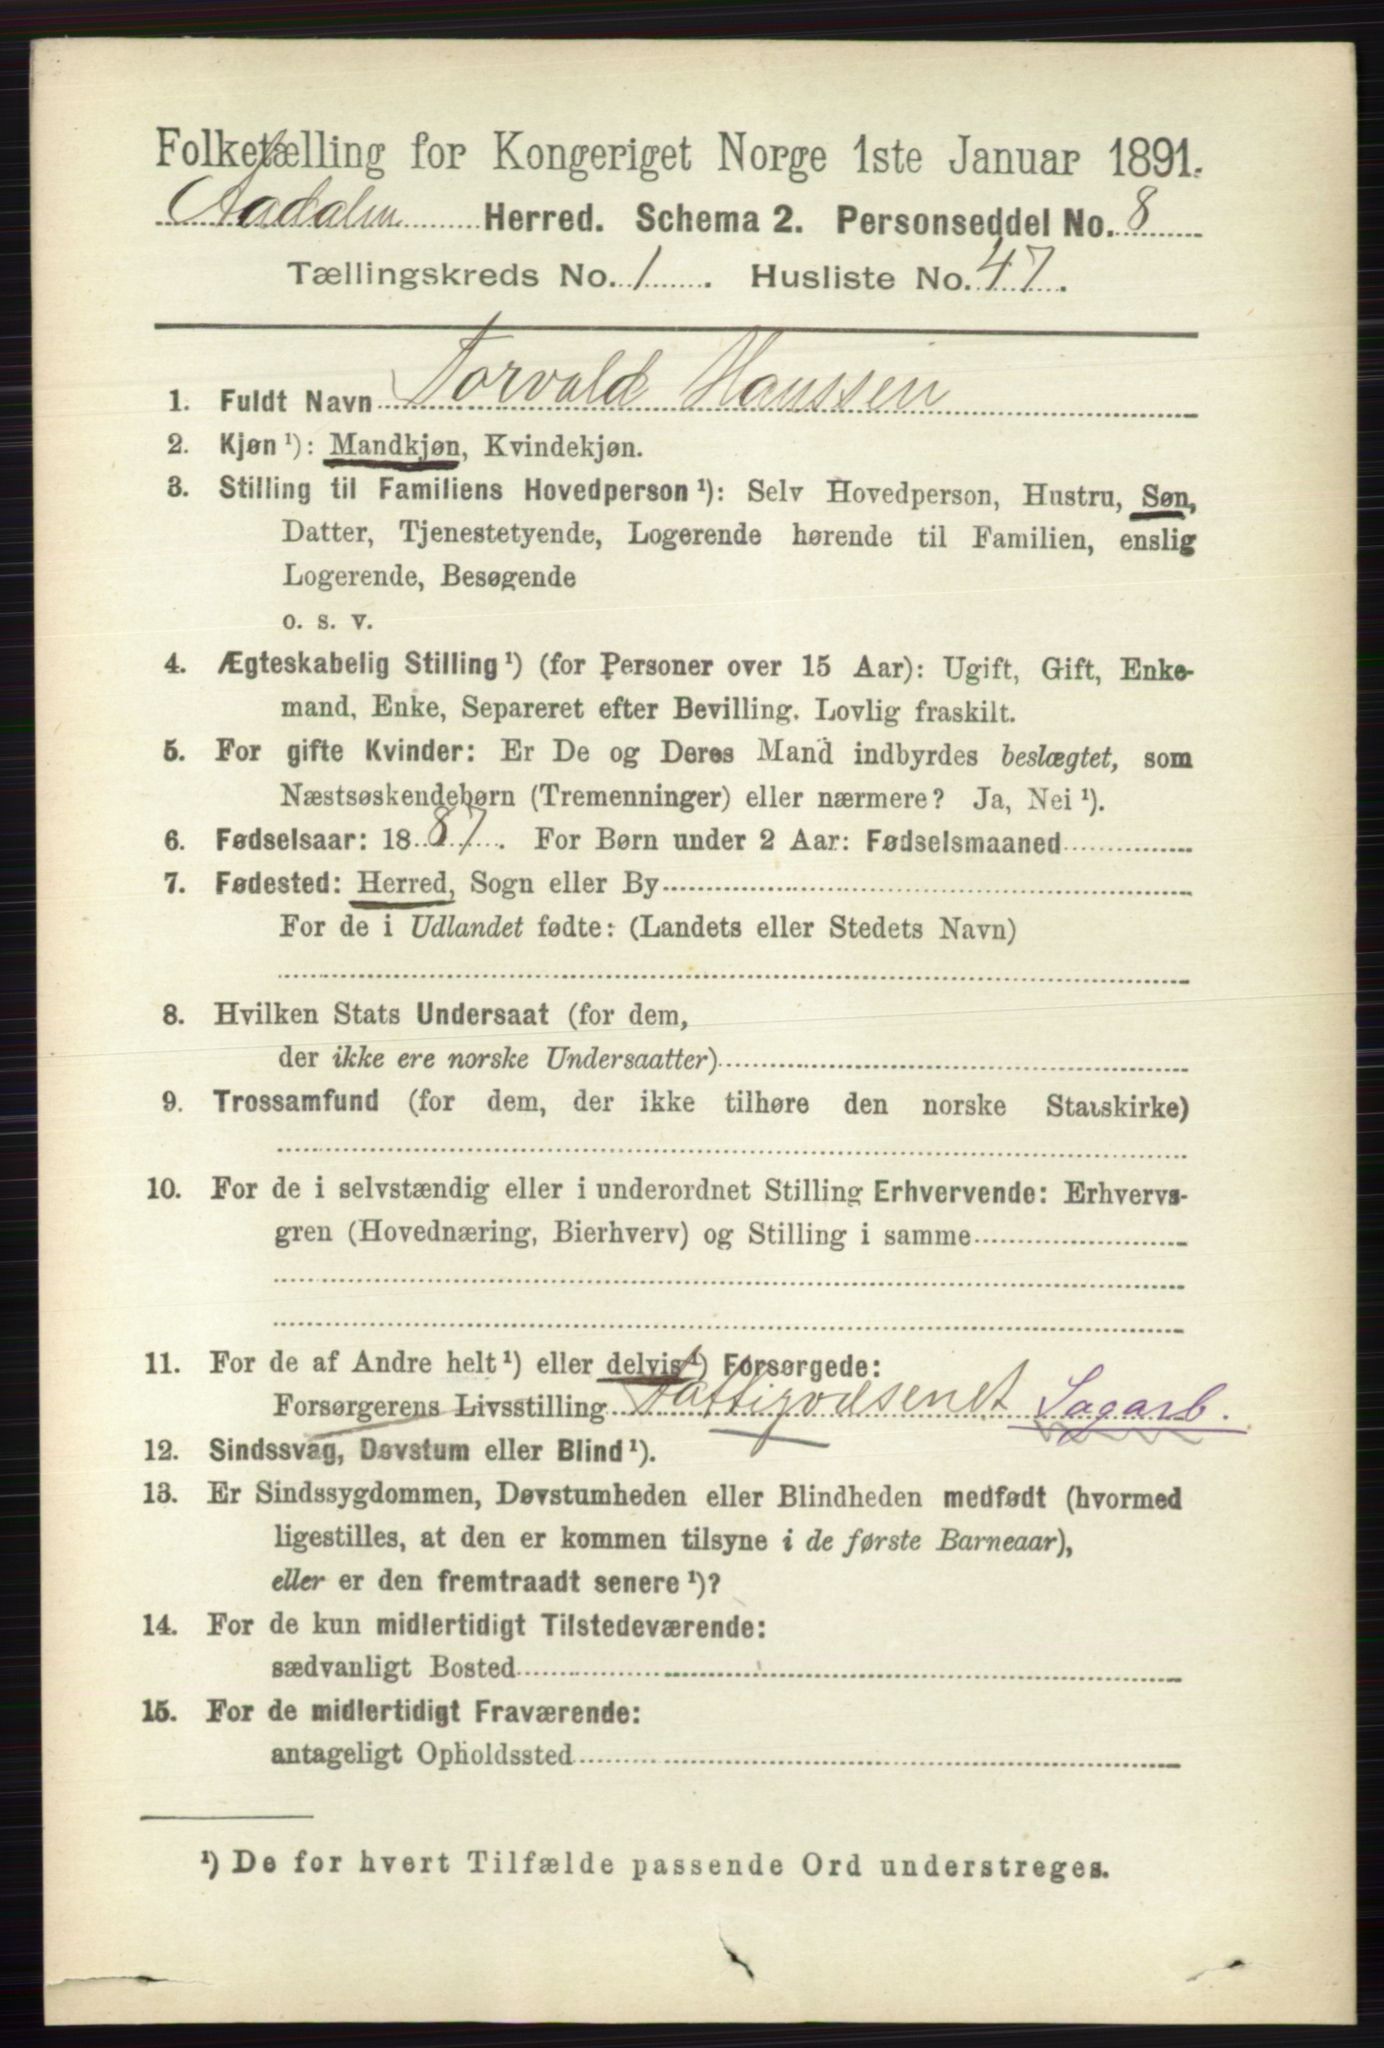 Folketælling for Kongeriget Norge 1ste Januar 1891.
Aadalen Herred. Schema 2. Personseddel No. 8
Tællingskreds No. 1. Husliste No. 47.
1. Fuldt Navn Torvald Hanssen
2. Kjøn ¹): Mandkjøn, Kvindekjøn.
3. Stilling til Familiens Hovedperson ¹): Selv Hovedperson, Hustru, Søn,
Datter, Tjenestetyende, Logerende hørende til Familien, enslig
Logerende, Besøgende
o. s. v.
4. Ægteskabelig Stilling ¹) (for Personer over 15 Aar): Ugift, Gift, Enke-
mand, Enke, Separeret efter Bevilling. Lovlig fraskilt.
5. For gifte Kvinder: Er De og Deres Mand indbyrdes beslægtet, som
Næstsøskendebørn (Tremenninger) eller nærmere? Ja, Nei ¹).
6. Fødselsaar: 1887. For Børn under 2 Aar: Fødselsmaaned
7. Fødested: Herred, Sogn eller By
For de i Udlandet fødte: (Landets eller Stedets Navn)
8. Hvilken Stats Undersaat (for dem,
der ikke ere norske Undersaatter)
9. Trossamfund (for dem, der ikke tilhøre den norske Statskirke)
10. For de i selvstændig eller i underordnet Stilling Erhvervende: Erhvervs-
gren (Hovednæring, Bierhverv) og Stilling i samme
11. For de af Andre helt ¹) eller delvis ¹) Forsørgede:
Forsørgerens Livsstilling Fattigvæsenet Sagarb.
12. Sindssvag, Døvstum eller Blind ¹).
13. Er Sindssygdommen, Døvstumheden eller Blindheden medfødt (hvormed
ligestilles, at den er kommen tilsyne i de første Barneaar),
eller er den fremtraadt senere ¹)?
14. For de kun midlertidigt Tilstedeværende:
sædvanligt Bosted
15. For de midlertidigt Fraværende:
antageligt Opholdssted
¹) De for hvert Tilfælde passende Ord understreges.